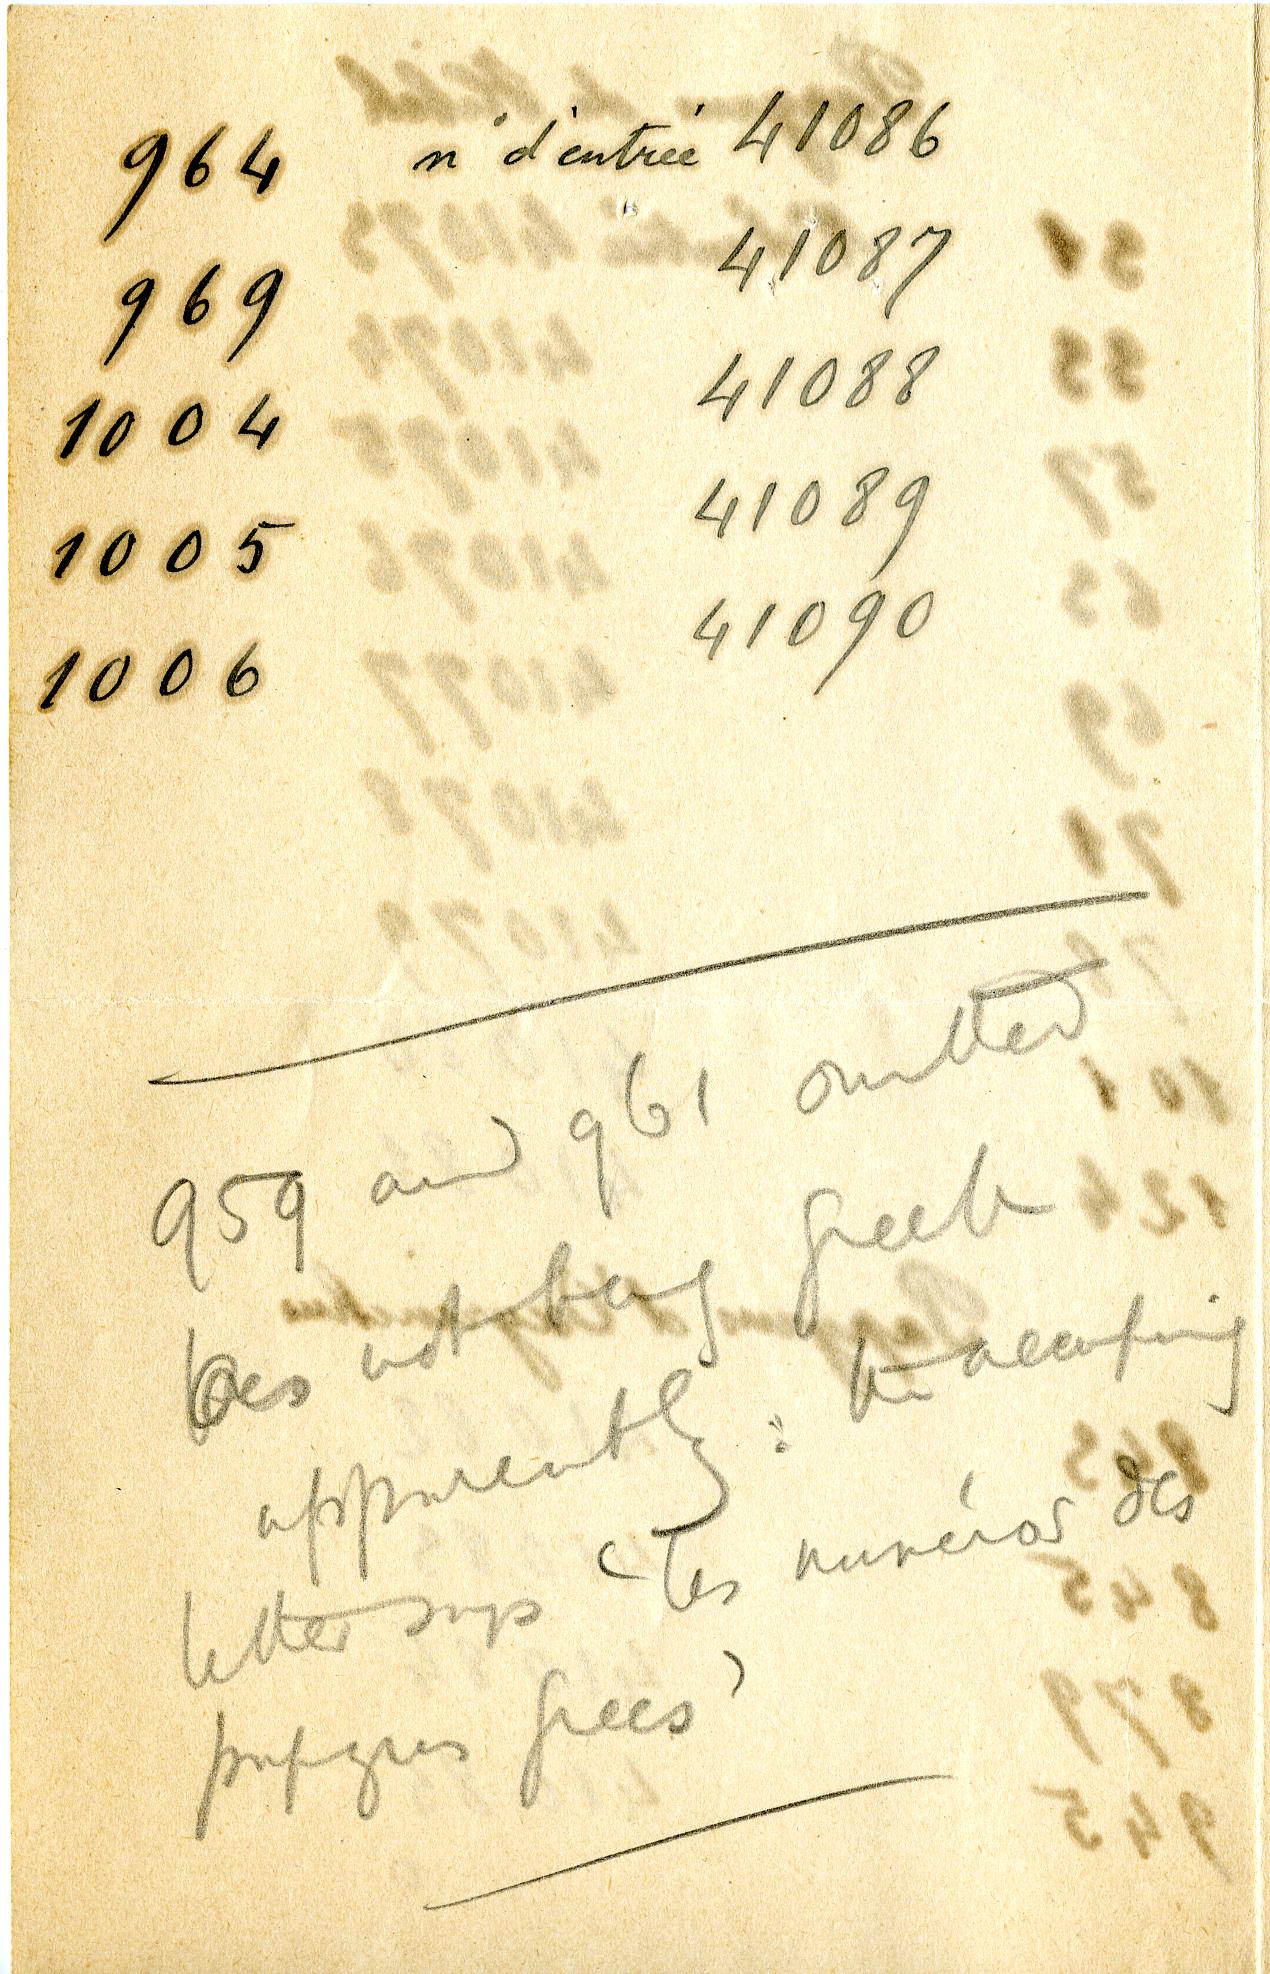 964 n° d'entrée 41086
969 41087
1004 41088
1005 41089
1006 41090
959 and 961 omitted
as not being Greek
apparently: the accompanying
letter says 'les numéros des
papyrus grecs'